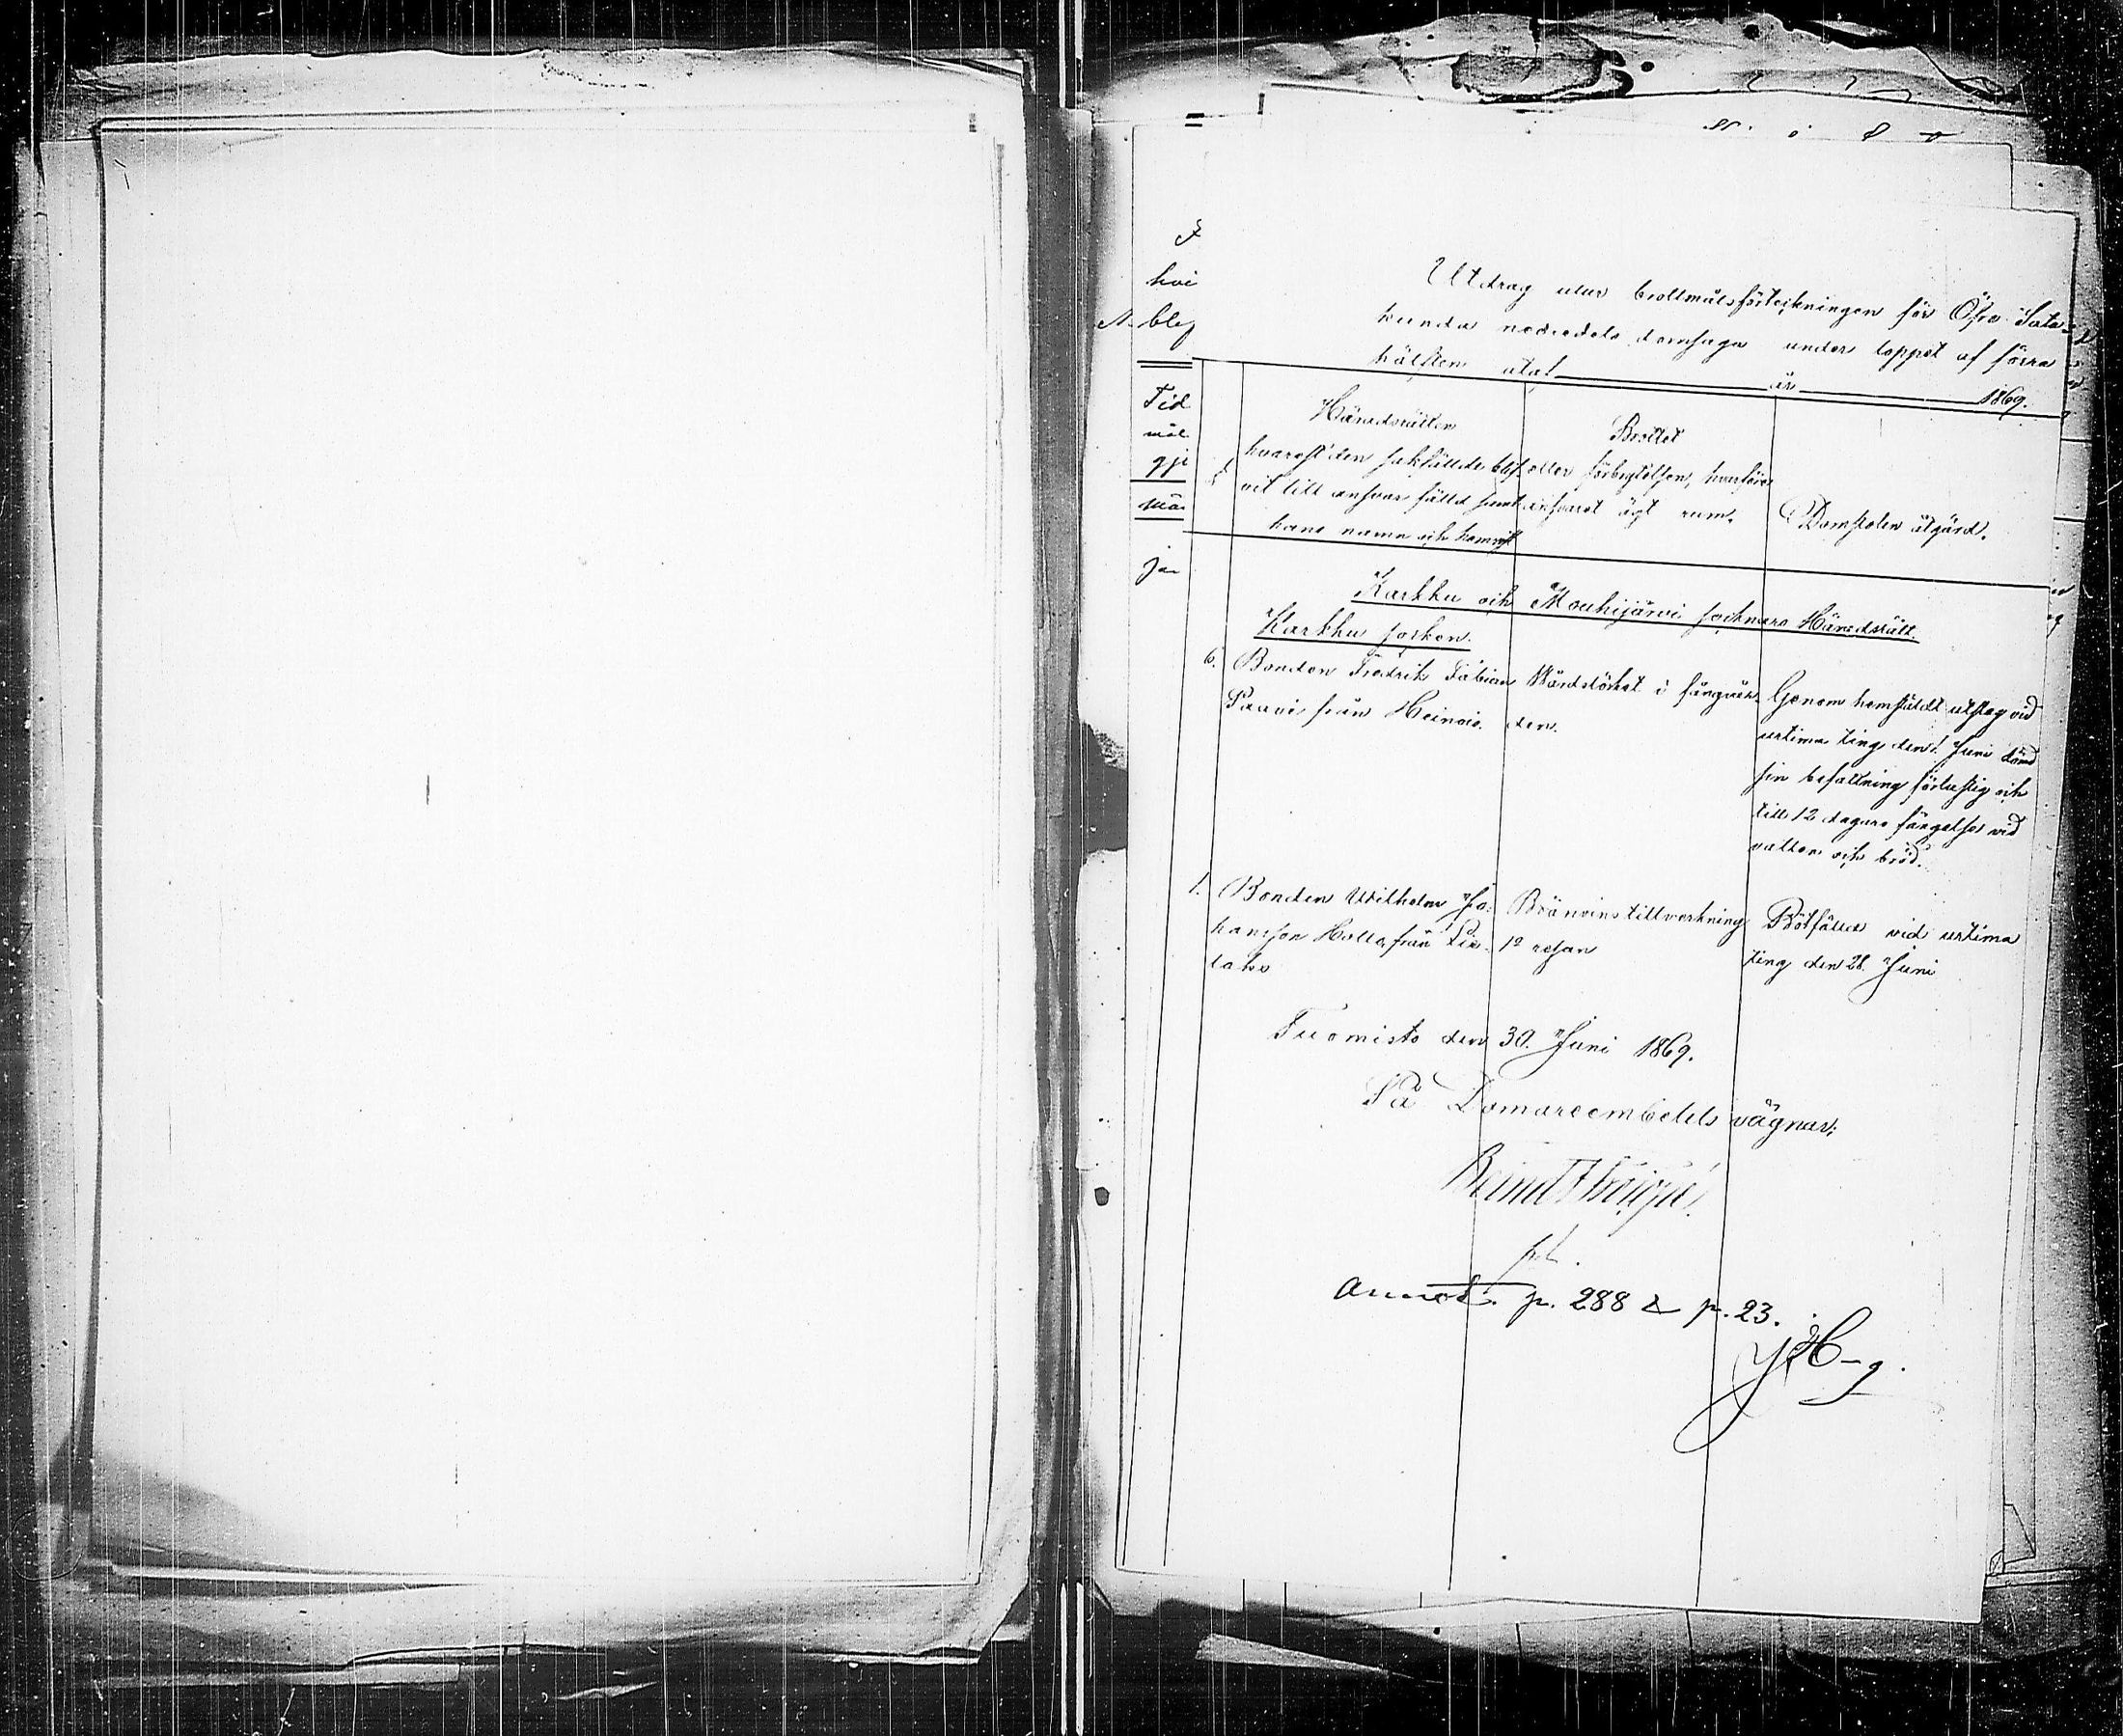 Utdrag utur brottmålsförteckningen för Öfre Sata-
kunda nedredels domsaga under loppet af förra
hälften utaf år 1869.
Häradsrätten
hvarest den sakfällde blif-
vit till ansvar fälld samt
hans namn och hemvist
Brottet
eller förbrytelsen, hvarföre
ansvaret ägt rum.
Domstolen åtgärd.
Karkku och Mouhijärvi socknars Häradsrätt.
Karkku socken.
6. Bonden Fredrik Fabian
Paavi från Heinois.
Wårdslöshet i fångvår-
den.
Genom hemstäldt utslag vid
urtima ting den 1. Juni dömd
sin befattning förlustig och
till 12 dagars fängelse vid
vatten och bröd.
1. Bonden Wilhelm Jo-
hansson Holla från
Bränvins tillverkning
1a resan
Bötfälld vid urtima
ting den 28. Juni
Tuomisto den 30. Juni 1869.
På Domareembetets vägnar:
Annot. p. 288 & p. 23.
Tid
mål
hvi
blef
ja